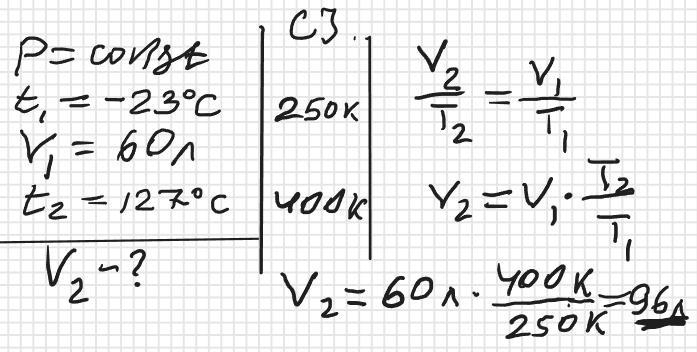 P = const
t₁ = -23°C
V₁ = 60л
t₂ = 127°c
V₂ - ?
СЗ.
250K
400K
V₂/T₂ = V₁/T₁
V₂ = V₁ · T₂/T₁
V₂ = 60л · 400K/250K = 96л